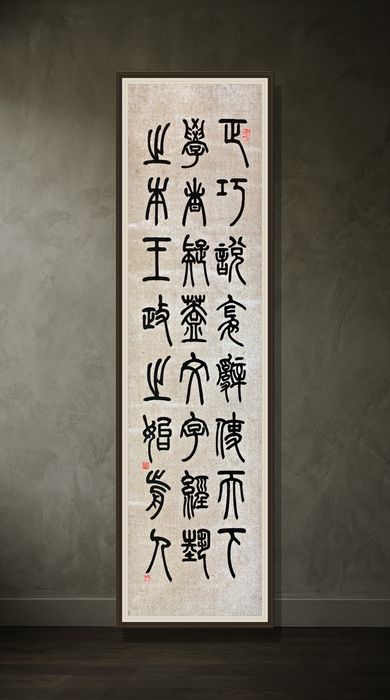 正巧說妄辭使天下
學者疑蓋文字經藝
之本王政之始前人